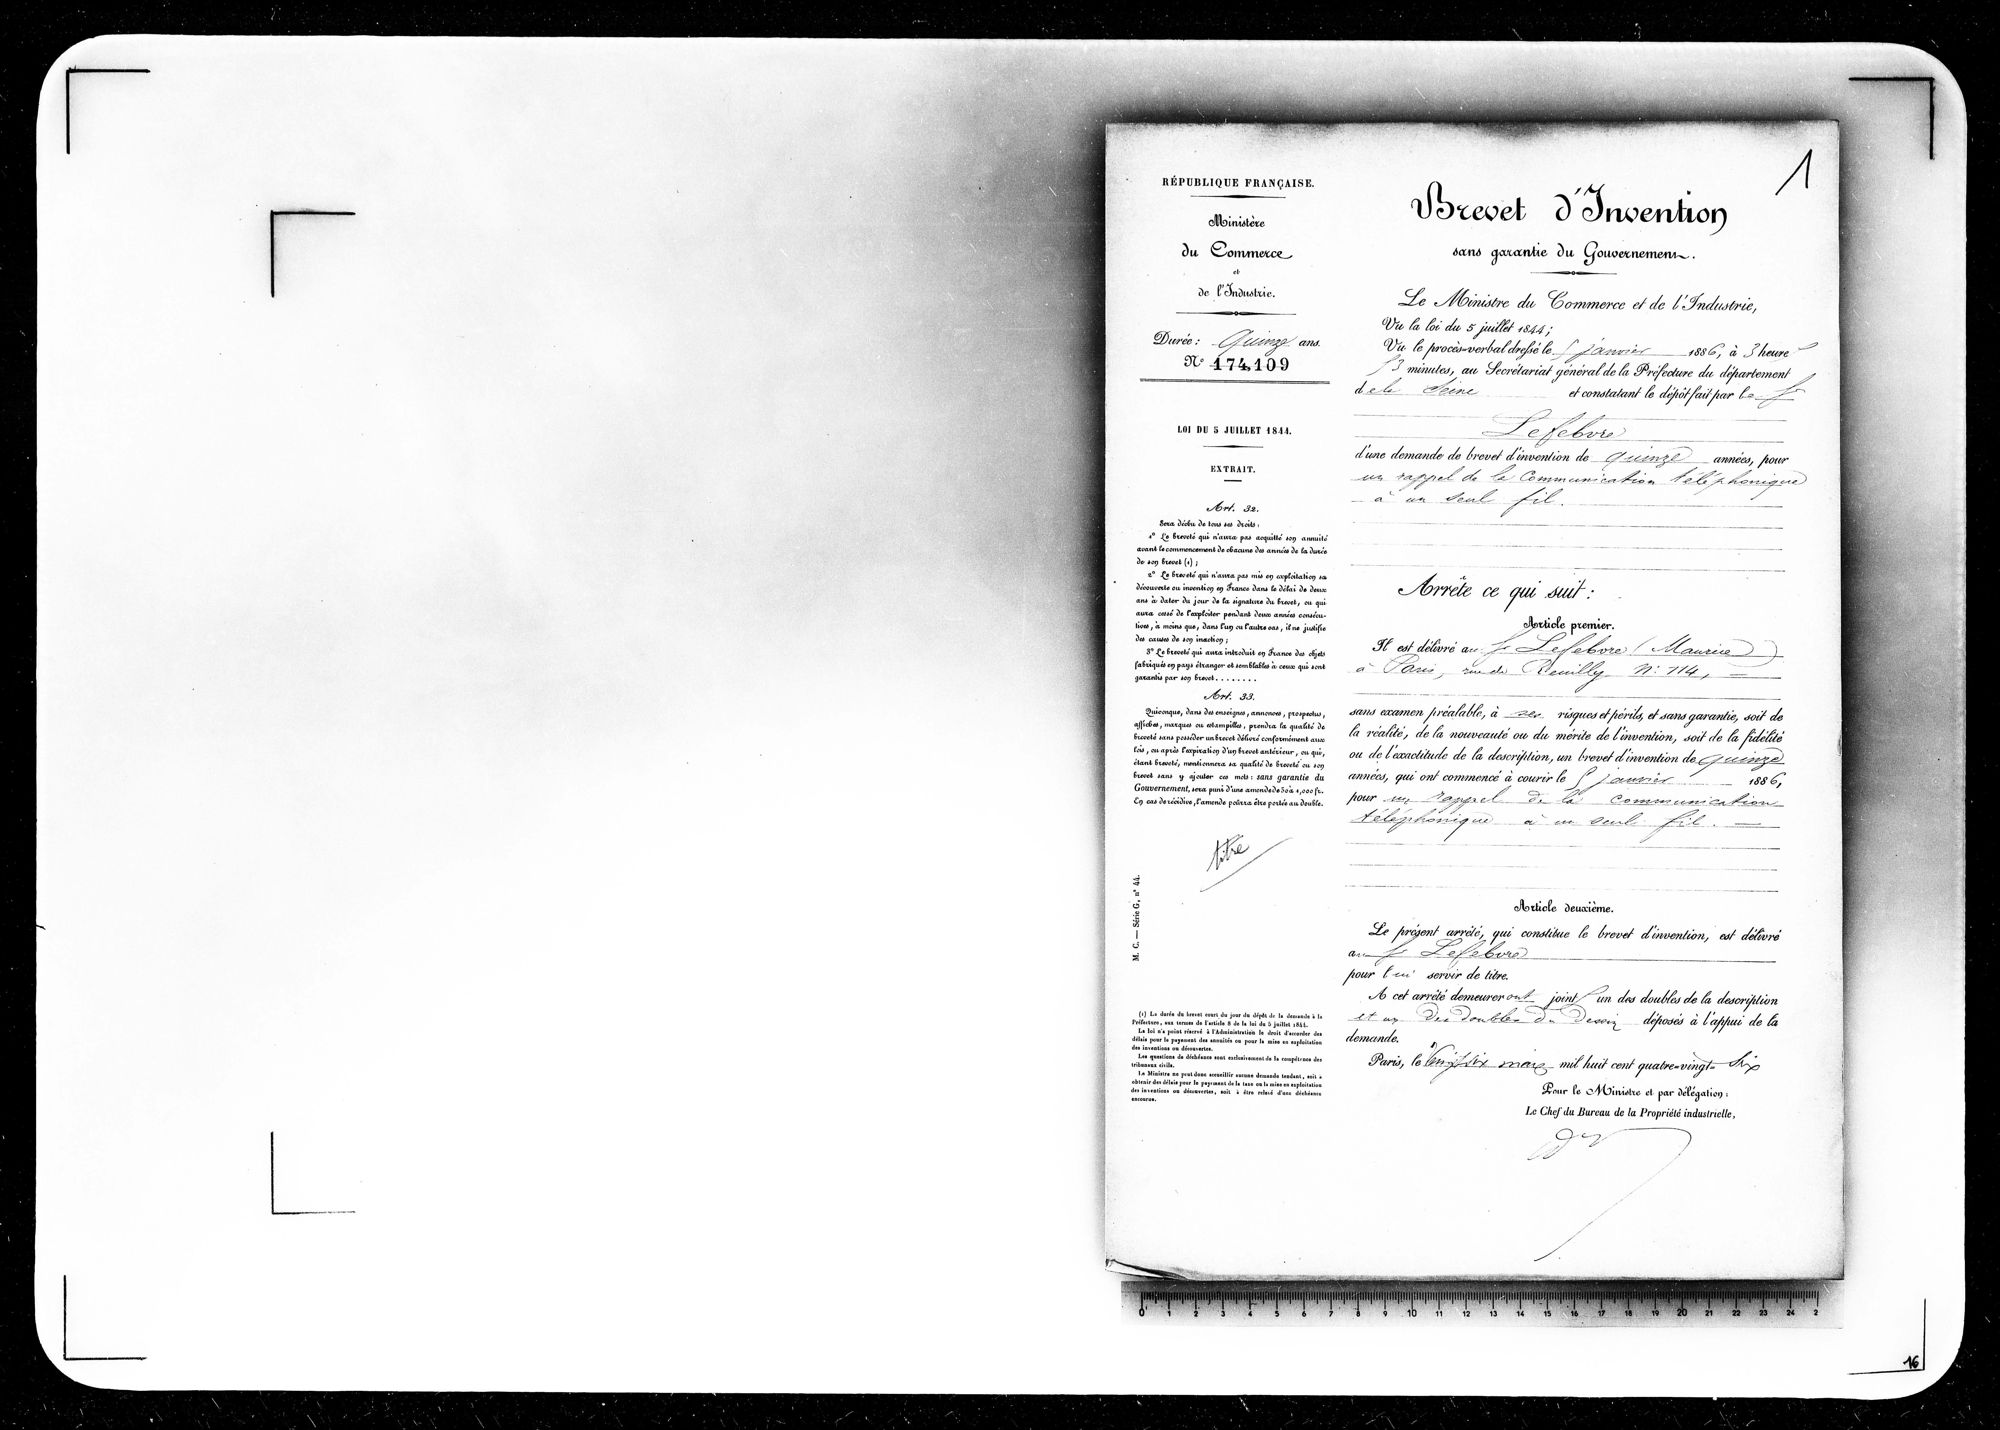 RÉPUBLIQUE FRANÇAISE.
Ministère
du Commerce
et
de l'Industrie.
Durée : Quinze ans.
N° 174,109
LOI DU 5 JUILLET 1844.
EXTRAIT.
Art. 32.
Sera déchu de tous ses droits :
1° Le breveté qui n'aura pas acquitté son annuité
avant le commencement de chacune des années de la durée
de son brevet (1) ;
2° Le breveté qui n'aura pas mis en exploitation sa
découverte ou invention en France dans le délai de deux
ans à dater du jour de la signature du brevet, ou qui
aura cessé de l'exploiter pendant deux années consécu-
tives, à moins que, dans l'un ou l'autre cas, il ne justifie
des causes de son inaction ;
3° Le breveté qui aura introduit en France des objets
fabriqués en pays étranger et semblables à ceux qui sont
garantis par son brevet........
Art. 33.
Quiconque, dans des enseignes, annonces, prospectus,
affiches, marques ou estampilles, prendra la qualité de
breveté sans posséder un brevet délivré conformément aux
lois, ou après l'expiration d'un brevet antérieur, ou qui,
étant breveté, mentionnera sa qualité de breveté ou son
brevet sans y ajouter ces mots : sans garantie du
Gouvernement, sera puni d'une amende de 50 à 1,000 fr.
En cas de récidive, l'amende pourra être portée au double.
titre
M. C. — Série G, n° 44.
(1) La durée du brevet court du jour du dépôt de la demande à la
Préfecture, aux termes de l'article 8 de la loi du 5 juillet 1844.
La loi n'a point réservé à l'Administration le droit d'accorder des
délais pour le payement des annuités ou pour la mise en exploitation
des inventions ou découvertes.
Les questions de déchéance sont exclusivement de la compétence des
tribunaux civils.
Le Ministre ne peut donc accueillir aucune demande tendant, soit à
obtenir des délais pour le payement de la taxe ou la mise en exploitation
des inventions ou découvertes, soit à être relevé d'une déchéance
encourue.
1
Brevet d'Invention
sans garantie du Gouvernement.
Le Ministre du Commerce et de l'Industrie,
Vu la loi du 5 juillet 1844 ;
Vu le procès-verbal dressé le 5 janvier 1886, à 3 heures
minutes, au Secrétariat général de la Préfecture du département
de la Seine et constatant le dépôt fait par le S.
Lefebvre
d'une demande de brevet d'invention de quinze années, pour
un rappel de la communication téléphonique
à un seul fil.
Arrête ce qui suit :
Article premier.
Il est délivré au S. Lefebvre (Maurice)
à Paris, rue de Reuilly N: 114,
sans examen préalable, à ses risques et périls, et sans garantie, soit de
la réalité, de la nouveauté ou du mérite de l'invention, soit de la fidélité
ou de l'exactitude de la description, un brevet d'invention de quinze
années, qui ont commencé à courir le 5 janvier 1886,
pour un rappel de la communication
téléphonique à un seul fil.
Article deuxième.
Le présent arrêté, qui constitue le brevet d'invention, est délivré
au S. Lefebvre
pour lui servir de titre.
A cet arrêté demeureront joints un des doubles de la description
et un des doubles du dessin déposés à l'appui de la
demande.
Paris, le vingt six mars mil huit cent quatre-vingt-six
Pour le Ministre et par délégation :
Le Chef du Bureau de la Propriété industrielle,
0 1 2 3 4 5 6 7 8 9 10 11 12 13 14 15 16 17 18 19 20 21 22 23 24 2
16